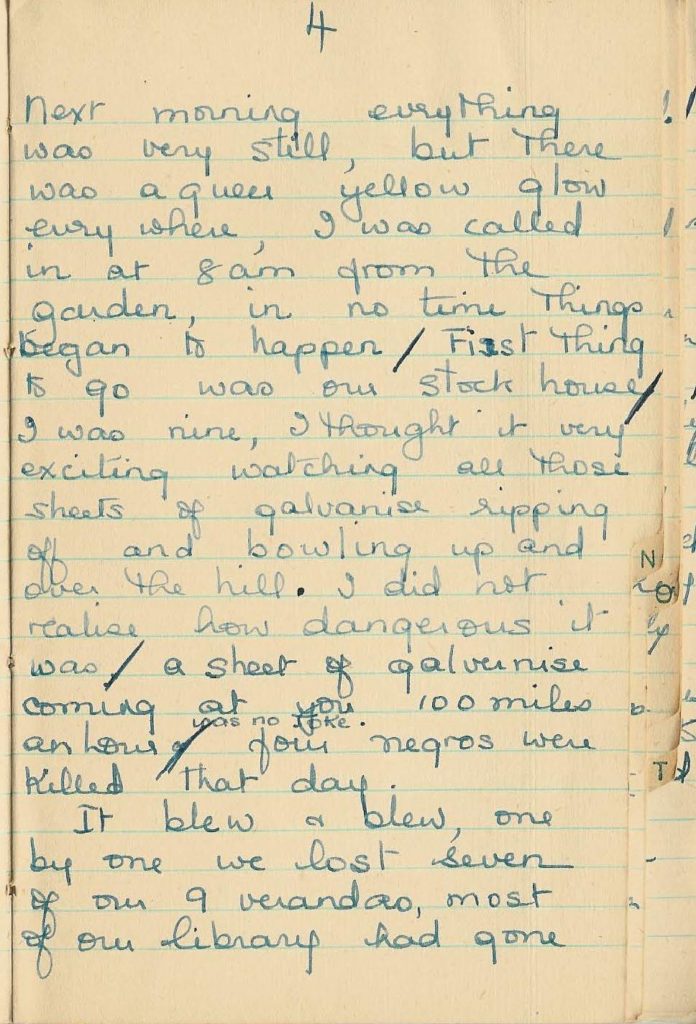 4
Next morning everything
was very still, but there
was a queer yellow glow
every where, I was called
in at 8am from the
garden, in no time things
began to happen / First thing
to go was our stock house /
I was nine, I thought it very
exciting watching all those
sheets of galvanise ripping
off and bowling up and
over the hill. I did not
realise how dangerous it
was / a sheet of galvernise
coming at you 100 miles
was no joke.
an hour / four negros were
killed that day.
It blew & blew, one
by one we lost seven
of our 9 verandas, most
of our library had gone
N
O
T